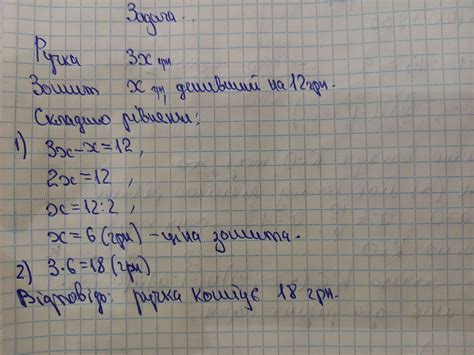 Задача.
Ручка 3х грн
Зошит х грн, дешевший на 12 грн.
Складемо рівняння:
1) 3х-х=12,
2х=12,
х=12:2,
х=6(грн)-ціна зошита.
2) 3·6=18(грн)
Відповідь: ручка коштує 18 грн.